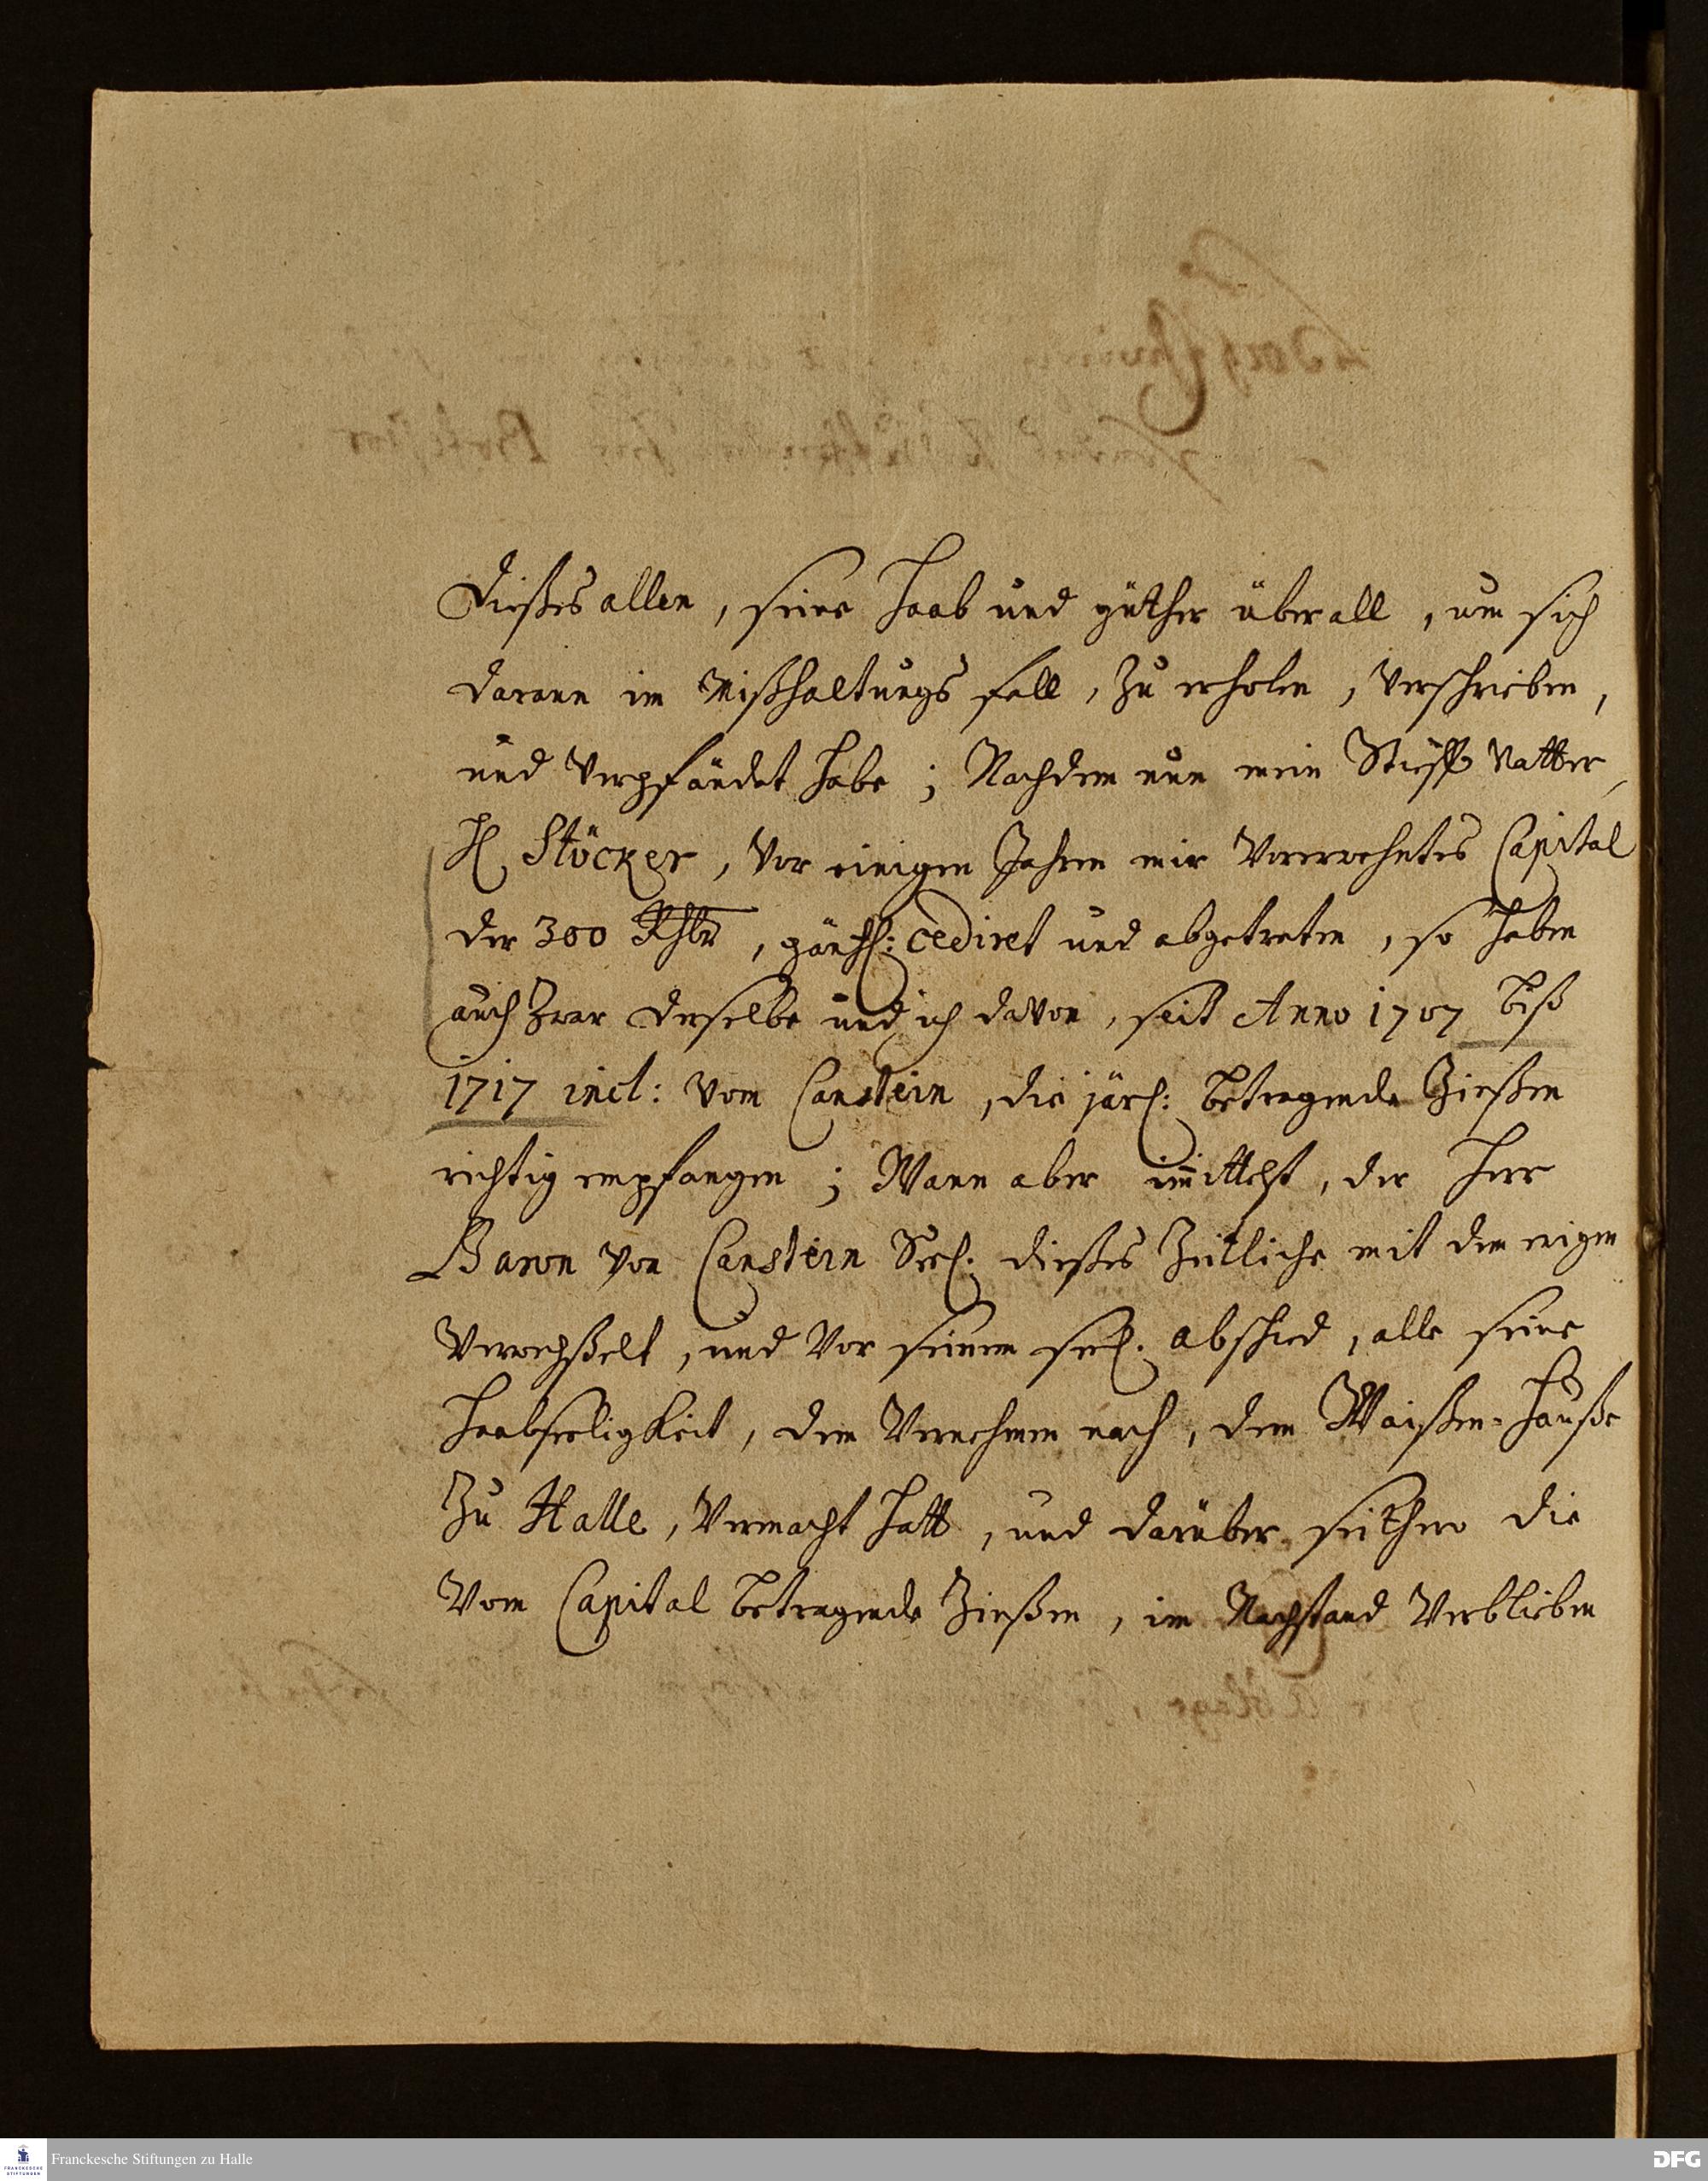 dießes allen, seine Haab und güther überall, um sich
daran im Mißhaltungs fall, zu erholen, verschrieben,
und verpfändet habe; Nachdem nun mein Stieff Vatter,
H. Stöcker, vor einigen Jahren mir vorerwehntes Capital
der 300 Rthlr, gäntzl: cediret und abgetreten, so haben
auch zwar derselbe und ich davon, seit Anno 1707 biß
1717 incl: vom Canstein, die järl: betragende Zinßen
richtig empfangen; Wann aber im̅ittelst, der Herr
Baron von Canstein Seel. dießes Zeitliche mit dem ewigen
verwechßelt, und vor seinem seel. abschied, alle seine
Haabseeligkeit, dem Vernehmen nach, dem Waißen-Hauße
zu Halle, vermacht hatt, und darüber seithero die
vom Capital betragende Zinßen, im Nachstand verblieben
Franckesche Stiftungen zu Halle
FRANCKESCHE
STIFTUNGEN
DFG